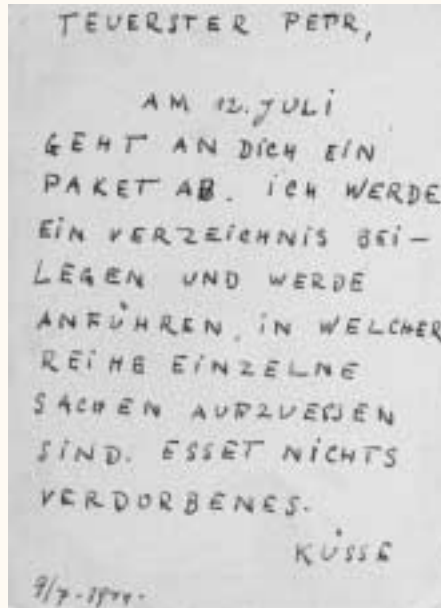 TEUERSTER PETR,
AM 12. JULI
GEHT AN DICH EIN
PAKET AB. ICH WERDE
EIN VERZEICHNIS BEI-
LEGEN UND WERDE
ANFÜHREN, IN WELCHER
REIHE EINZELNE
SACHEN AUFZUESSEN
SIND. ESSET NICHTS
VERDORBENES.
KÜSSE
9/7-1944.